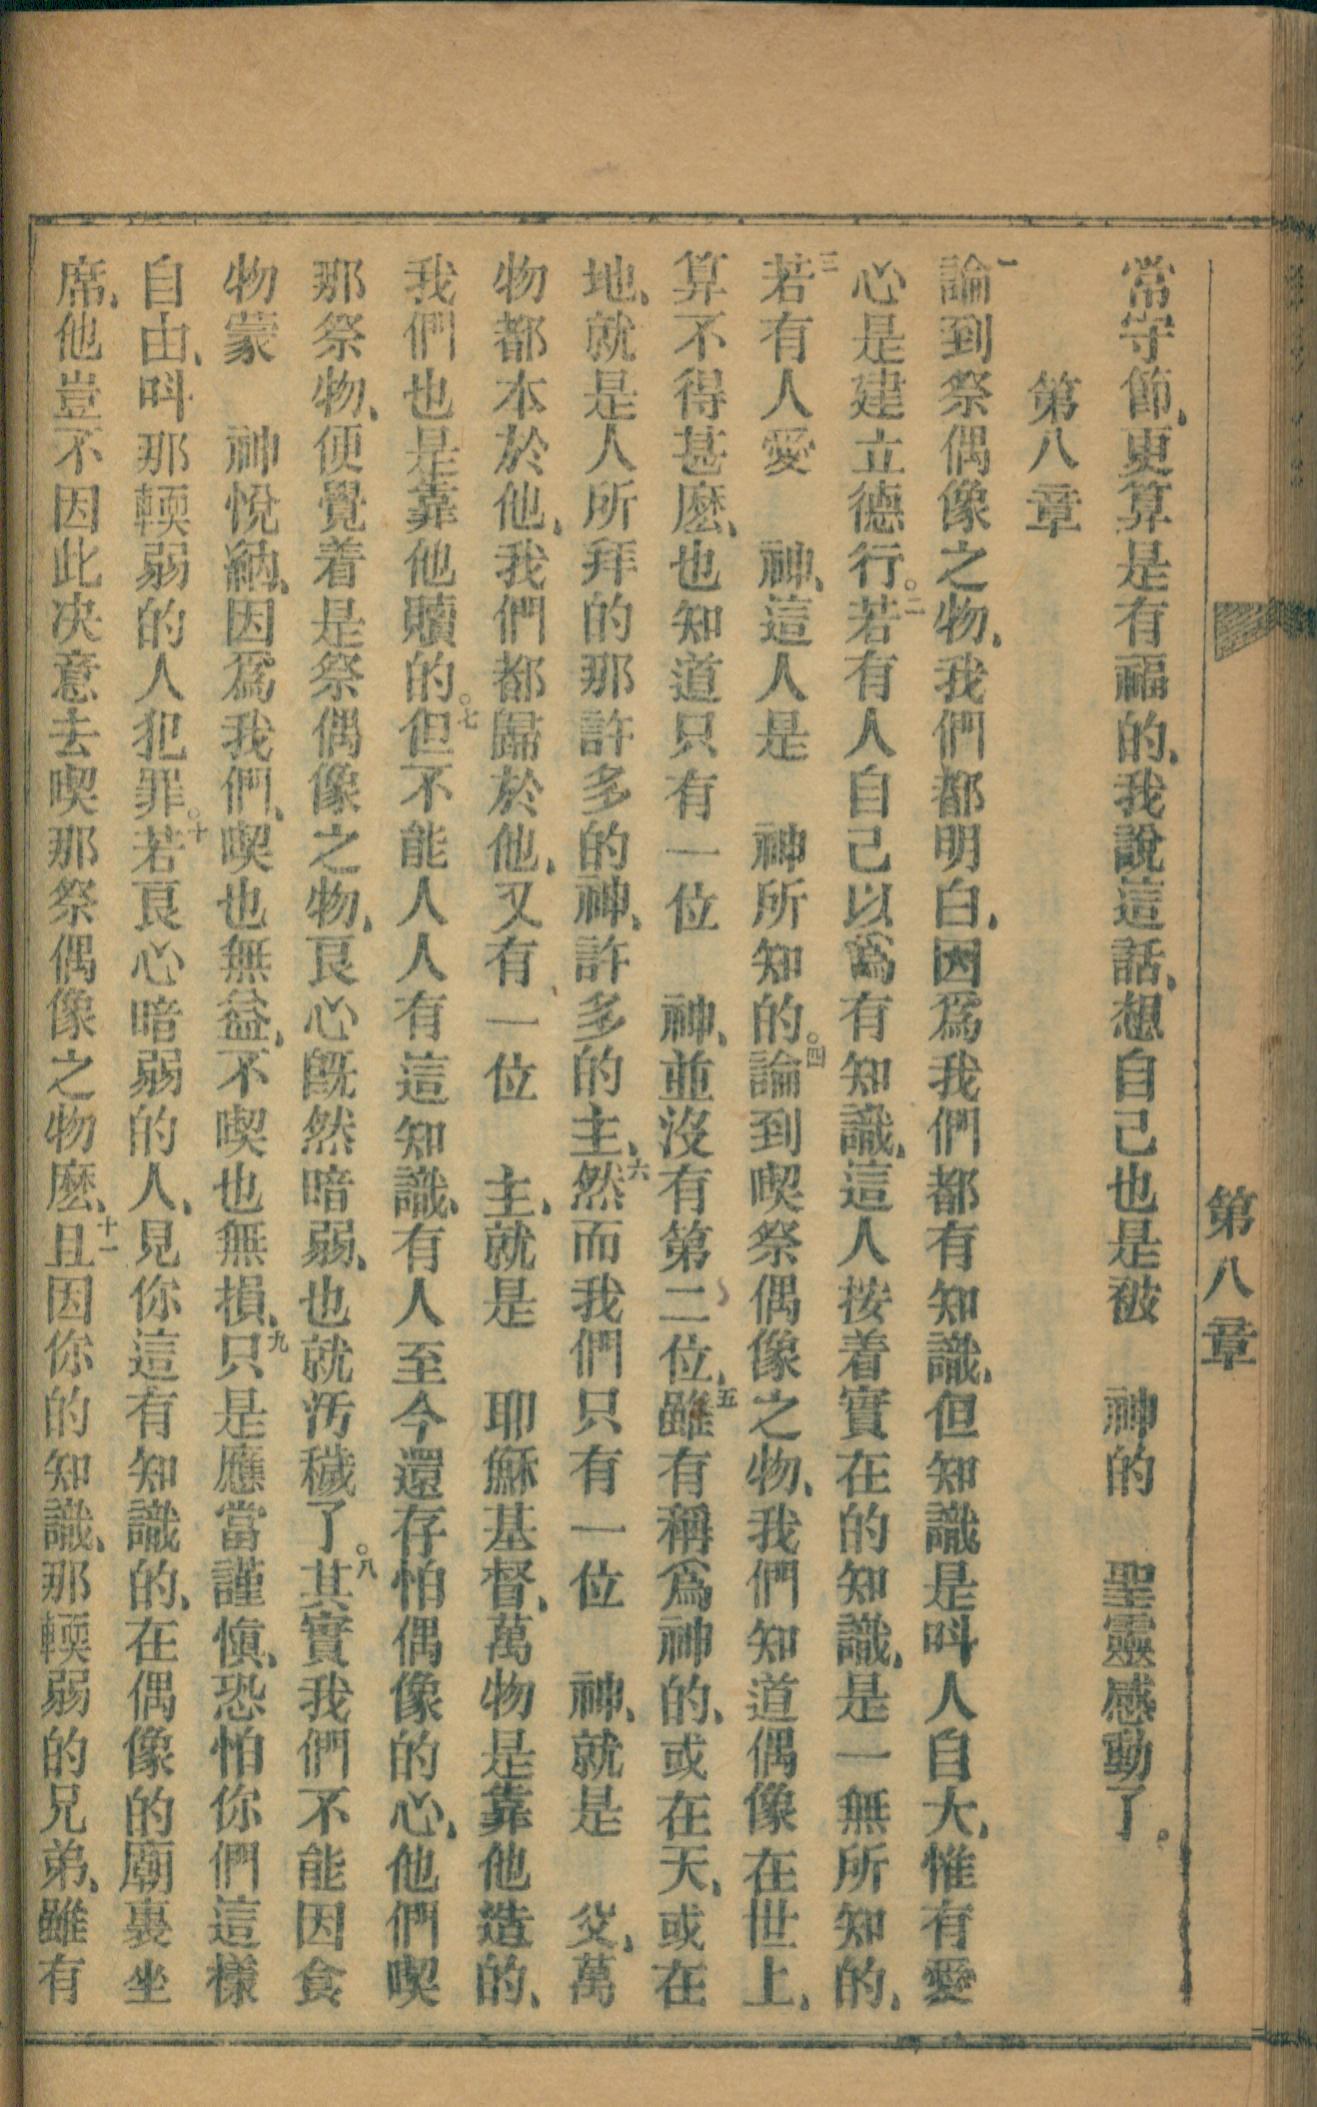 第八章
常守節、更算是有福的、我說這話、想自己也是被　神的　聖靈感動了。
第八章
一論到祭偶像之物、我們都明白、因爲我們都有知識、但知識是呌人自大、惟有愛
心是建立德行。二若有人自己以爲有知識、這人按着實在的知識、是一無所知的、
三若有人愛　神、這人是　神所知的。四論到喫祭偶像之物、我們知道偶像在世上、
算不得甚麽、也知道只有一位　神、並沒有第二位、五雖有稱爲神的、或在天、或在
地、就是人所拜的那許多的神、許多的主、六然而我們只有一位　神、就是　父、萬
物都本於他、我們都歸於他、又有一位　主、就是　耶穌基督、萬物是靠他造的、
我們也是靠他贖的。七但不能人人有這知識、有人至今還存怕偶像的心、他們喫
那祭物、便覺着是祭偶像之物、良心旣然暗弱、也就汚穢了。八其實我們不能因食
物蒙　神悅納、因爲我們、喫也無益、不喫也無損、九只是應當謹愼、恐怕你們這樣
自由、呌那輭弱的人犯罪。十若良心暗弱的人、見你這有知識的、在偶像的廟裏坐
席、他豈不因此决意去喫那祭偶像之物麽、十一且因你的知識、那輭弱的兄弟、雖有